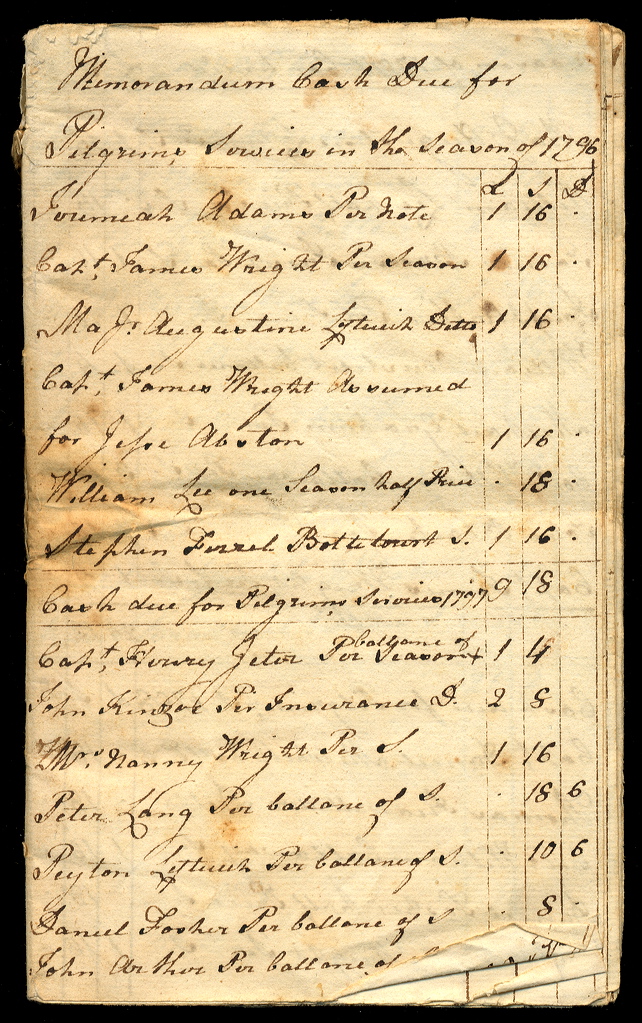 Memorandum Cash Due for
Pilgrims Services in the Season of 1796
£ S D
Jeremeah Adams Per Note 1 16 .
Capt. James Wright Per Season 1 16 .
Majr. Augustine Leftwich Ditto 1 16 .
Capt. James Wright Assumed
for Jesse Abston 1 16 .
William Lee one Season half Price . 18 .
Stephen Ferrel Bottetourt S. 1 16 .
Cash due for Pilgrims Services 1797 9 18
ballane of
Capt. Henry Jeter Per Season 1 4
John Per Insurance D. 2 8
Mrs. Nanny Wright Per S. 1 16
Peter Lang Per ballane of S. . 18 6
Peyton Leftwich Per ballane of S. . 10 6
Daniel Per ballane of S . 8 .
John Arthor Per ballane of